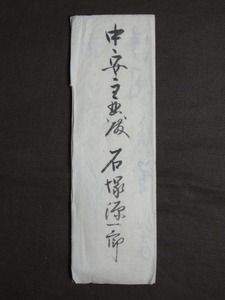 中安主典殿 石塚源一郎